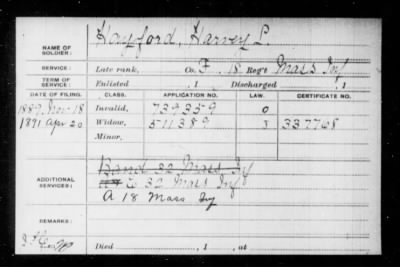 Hayford, Harvey L.
NAME OF SOLDIER:
SERVICE: Late rank, Co. F. 18 Reg't Mass Inf
TERM OF SERVICE: Enlisted , 1 Discharged , 1
DATE OF FILING. CLASS. APPLICATION NO. LAW. CERTIFICATE NO.
1889 Nov 18 Invalid, 739359 0
1891 Apr 20 Widow, 511389 J 337768
Minor,
ADDITIONAL SERVICES:
Band 32 Mass Inf
32 Mass Inf
A 18 Mass Inf
REMARKS:
Died , 1 , at